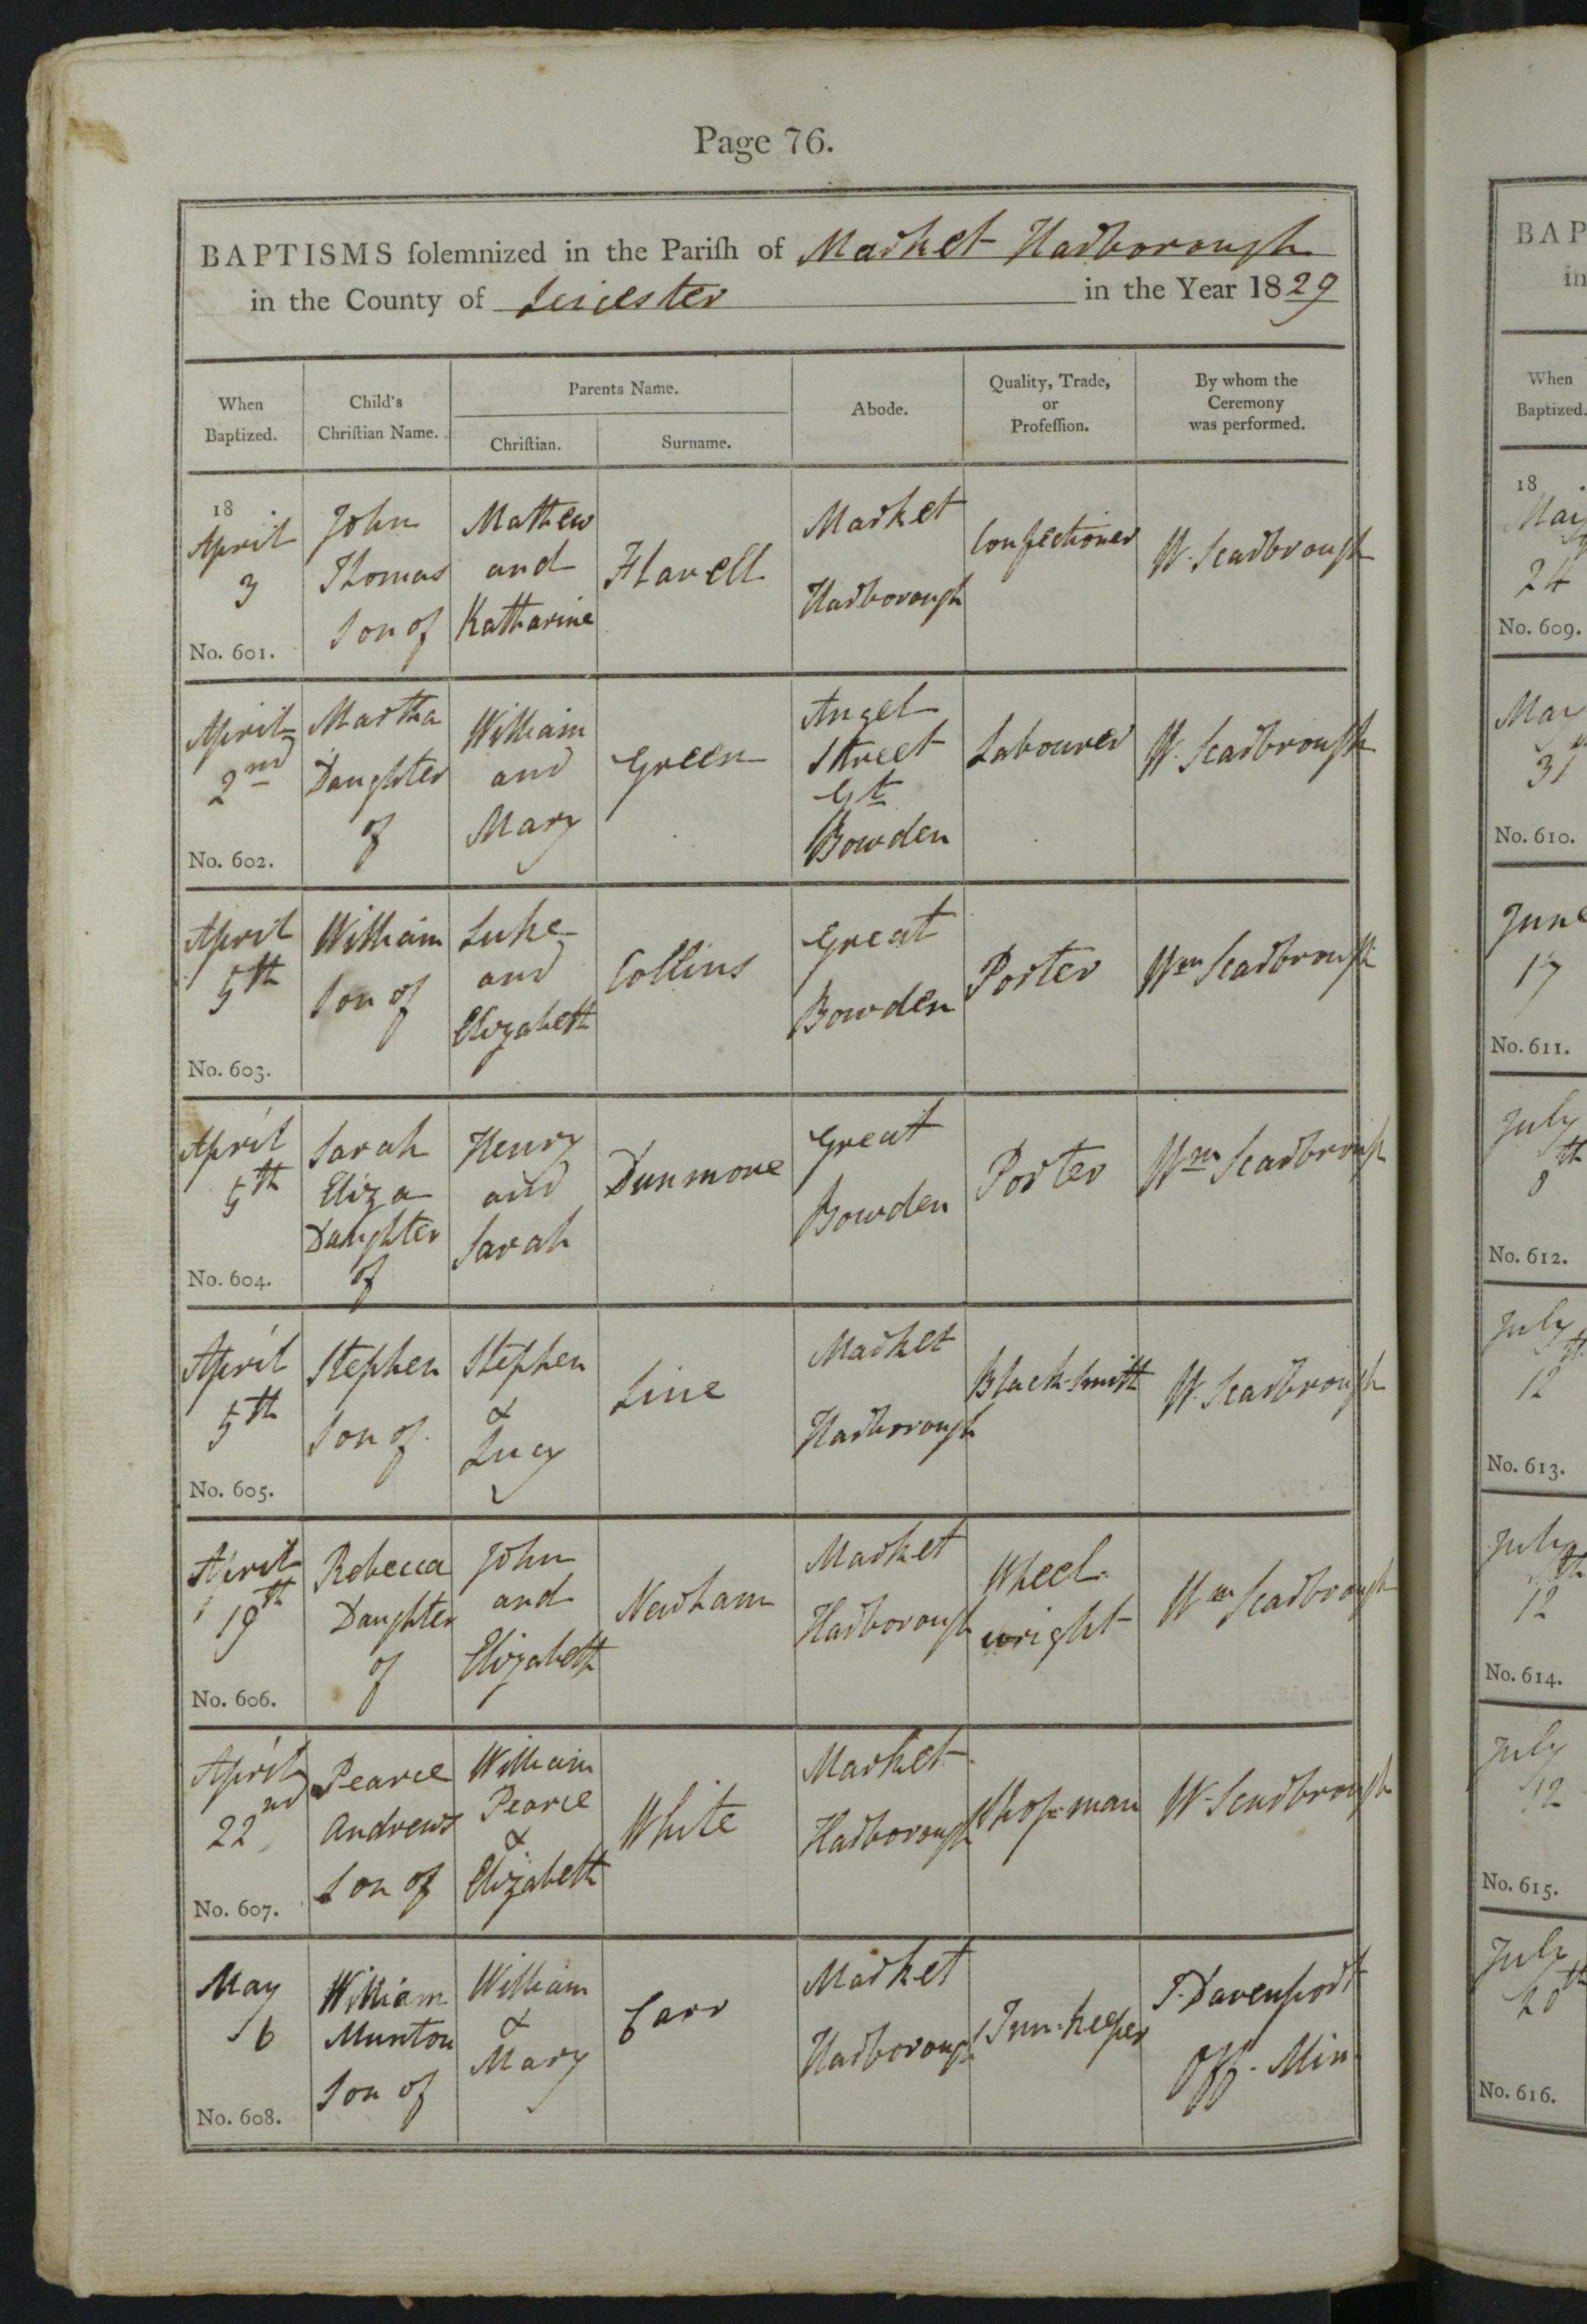 Page 76.
BAPTISMS ſolemnized in the Pariſh of Market Harborough
in the County of Leicester in the Year 1829
When
Baptized.
Child's
Chriſtian Name.
Parents Name.
Chriſtian.
Surname.
Abode.
Quality, Trade,
or
Profeſſion.
By whom the
Ceremony
was performed.
18
April
3
No. 601.
John
Thomas
Son of
Mathew
and
Katharine
Flavell
Market
Harborough
Confectioner
W. Scarbrough
April
2nd
No. 602.
Martha
Daughter
of
William
and
Mary
Green
Angel
Street
Gt
Bowden
Labourer
W. Scarbrough
April
5th
No. 603.
William
Son of
Luke
and
Elizabeth
Collins
Great
Bowden
Porter
Wm Scarbrough
April
5th
No. 604.
Sarah
Eliza
Daughter
of
Henry
and
Sarah
Dunmore
Great
Bowden
Porter
Wm Scarbrough
April
5th
No. 605.
Stephen
Son of
Stephen
&
Lucy
Line
Market
Harborough
Black-Smith
W. Scarbrough
April
19th
No. 606.
Rebecca
Daughter
of
John
and
Elizabeth
Newham
Market
Harborough
Wheel-
wright
Wm Scarbrough
April
22nd
No. 607.
Pearce
Andrews
Son of
William
Pearce
&
Elizabeth
White
Market
Harborough
Shop-man
W. Scarbrough
May
6
No. 608.
William
Munton
Son of
William
&
Mary
Carr
Market
Harborough
Inn-keeper
J. Davenport
Off. Min.
BAP
in
When
Baptized.
18
May
24
No. 609.
May
31
No. 610.
June
17
No. 611.
July
8th
No. 612.
July
12
No. 613.
July
12
No. 614.
July
12
No. 615.
July
20th
No. 616.